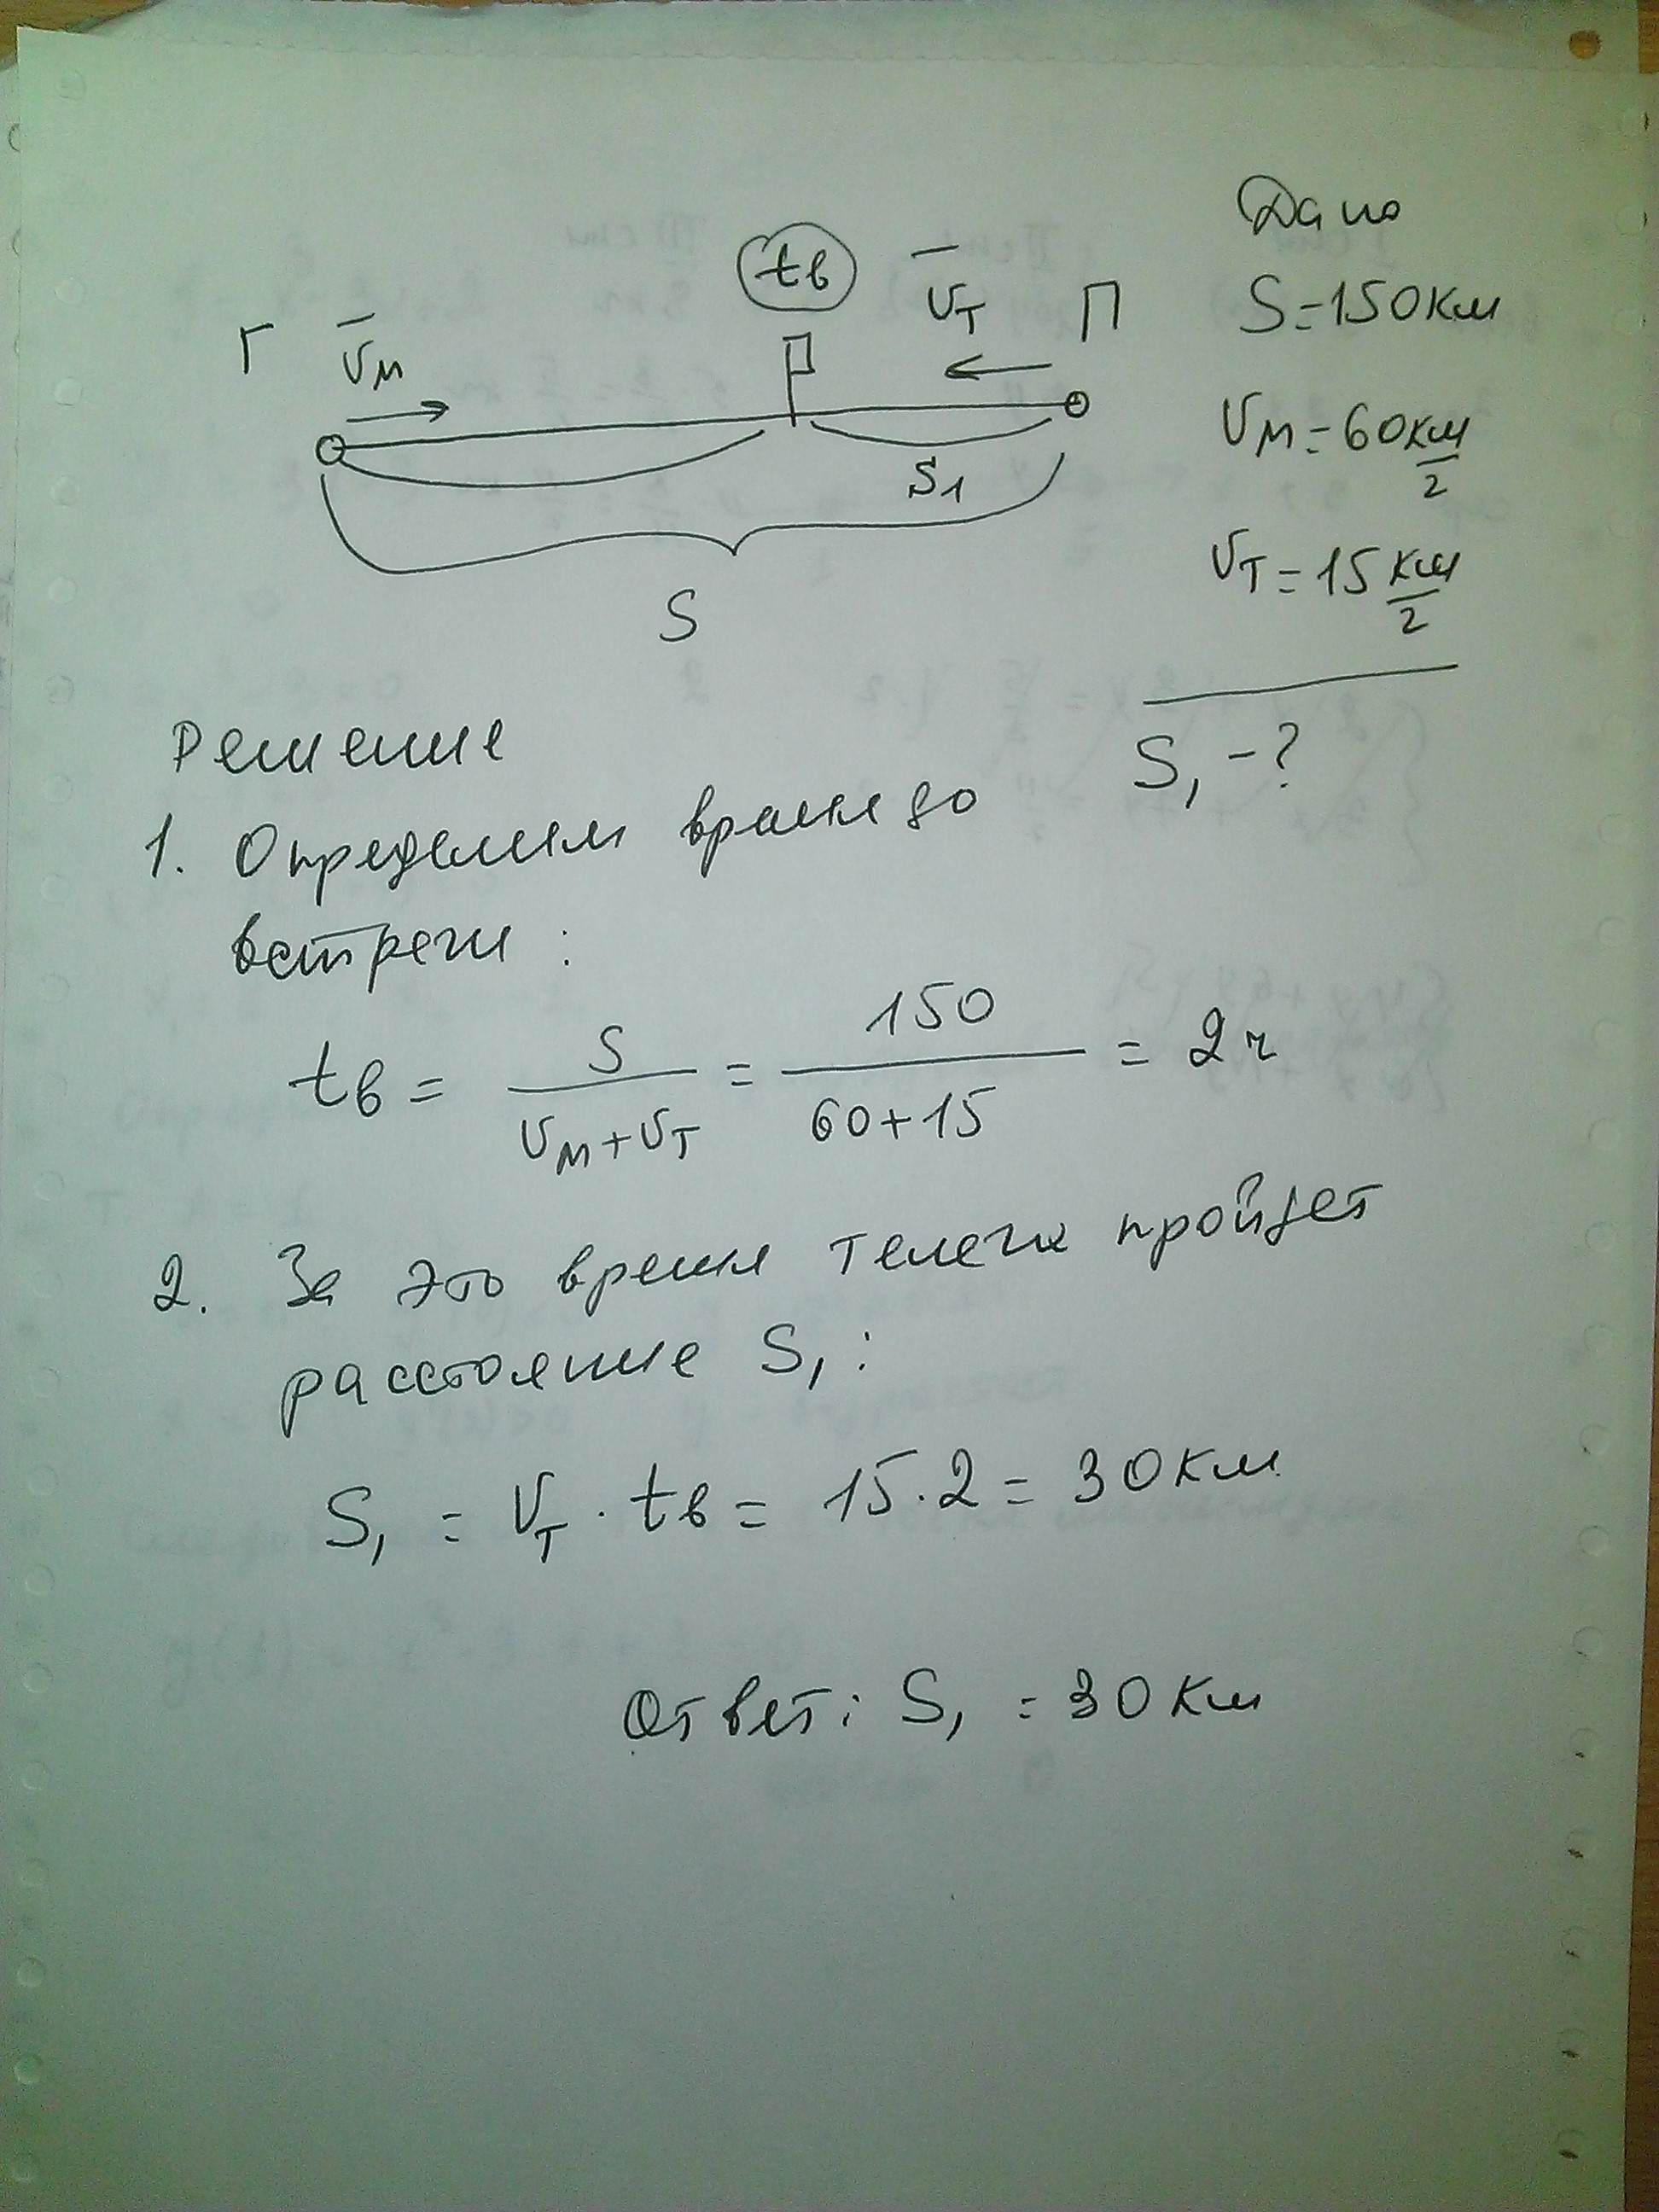 Дано
tв
V̅т
П
S=150км
Г
V̅м
Vм=60 км/ч
S1
Vт=15 км/ч
S
S1 -?
Решение
1. Определим время до
встречи:
tв = S/(Vм+Vт) = 150/(60+15) = 2ч
2. За это время телега пройдет
расстояние S1:
S1 = Vт · tв = 15·2 = 30км
Ответ: S1 = 30км